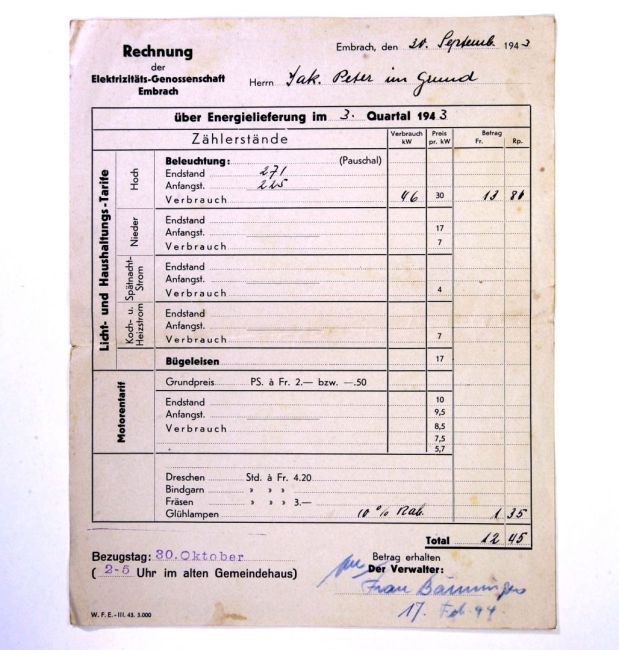 Rechnung
der
Elektrizitäts-Genossenschaft
Embrach
Embrach, den 30. Septemb. 1943
Herrn Jak. Peter im Grund
über Energielieferung im 3. Quartal 1943
Zählerstände
Verbrauch kW
Preis pr. kW
Betrag
Fr. Rp.
Licht- und Haushaltungs-Tarife
Hoch
Beleuchtung: (Pauschal)
Endstand 271
Anfangst. 225
Verbrauch 46 30 13 80
Nieder
Endstand
Anfangst. 17
Verbrauch 7
Spätnacht-Strom
Endstand
Anfangst.
Verbrauch 4
Koch- u. Heizstrom
Endstand
Anfangst.
Verbrauch 7
Bügeleisen 17
Motorentarif
Grundpreis PS. à Fr. 2.— bzw. —.50
Endstand 10
Anfangst. 9,5
Verbrauch 8,5
7,5
5,7
Dreschen Std. à Fr. 4.20
Bindgarn » » »
Fräsen » » 3.—
Glühlampen 10% Rab. 1 35
Total 12 45
Bezugstag: 30. Oktober
(2-5 Uhr im alten Gemeindehaus)
Betrag erhalten
Der Verwalter:
Frau
17. Feb 44.
W. F. E. - III. 43. 3.000